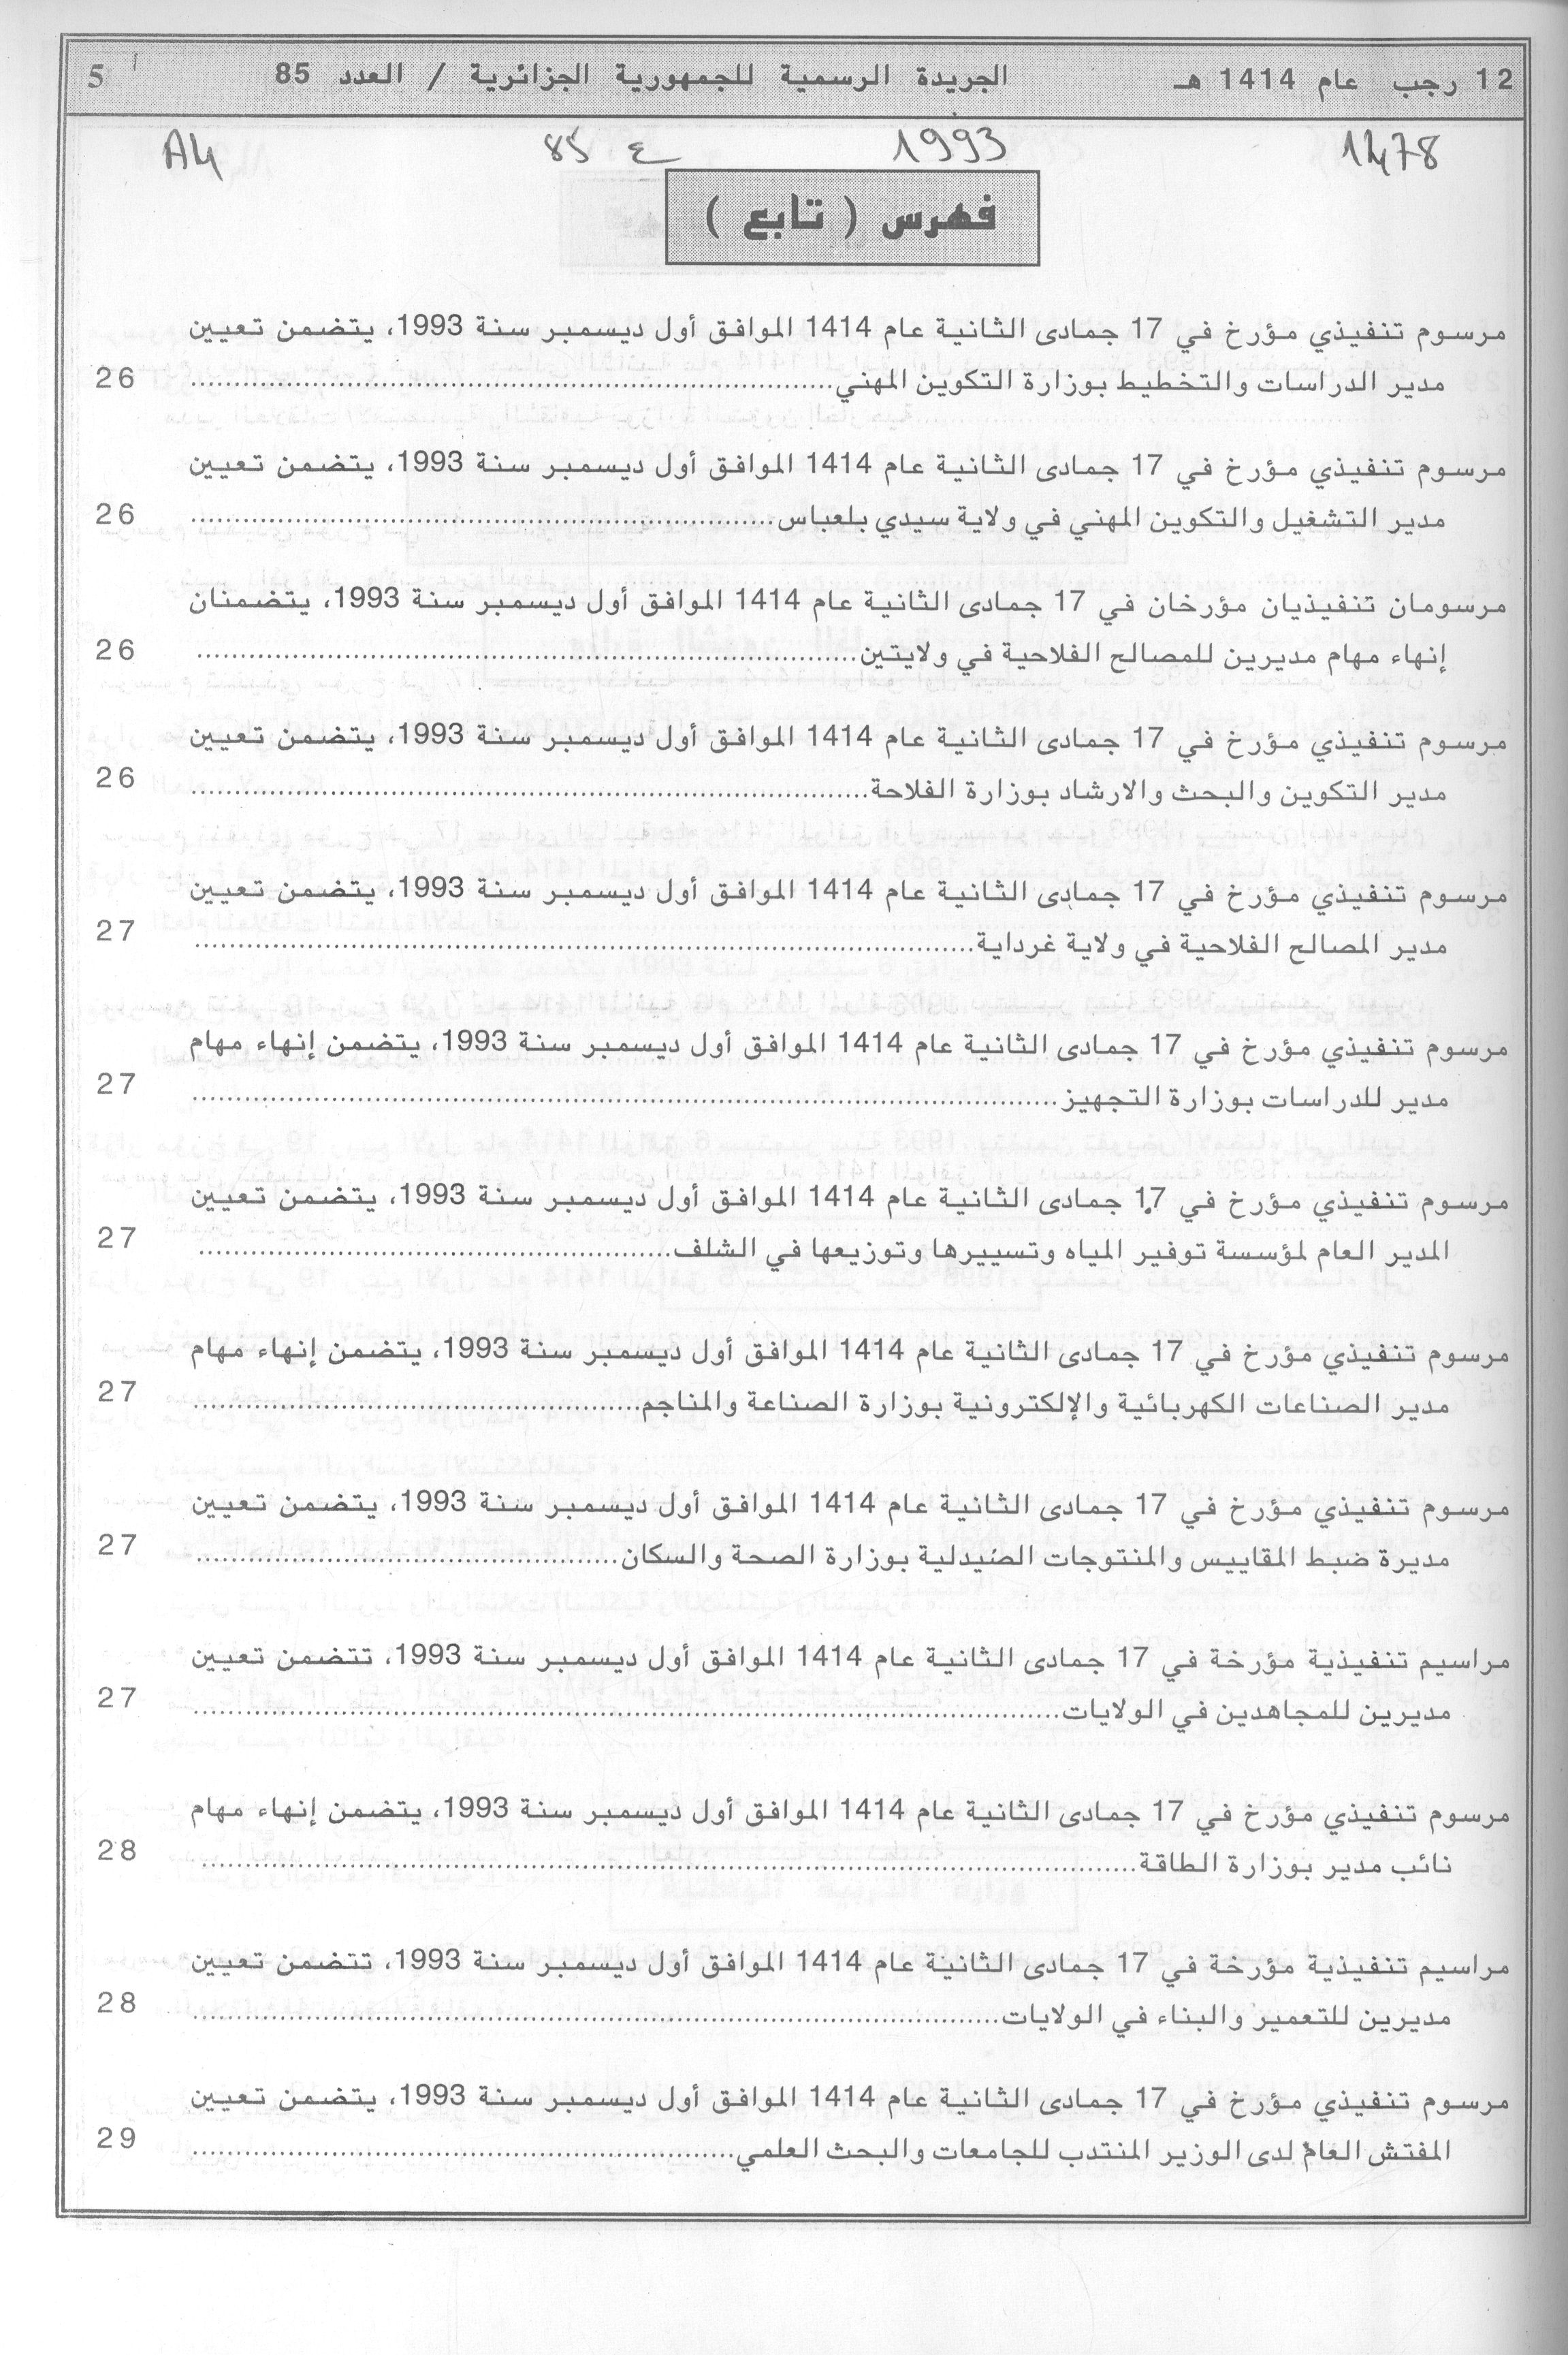 12 رجب عام 1414 هـ الجريدة الرسمية للجمهورية الجزائرية / العدد 85 5
1478 1993 ع 85 A4
فهرس ( تابع )
مرسوم تنفيذي مؤرخ في 17 جمادى الثانية عام 1414 الموافق أول ديسمبر سنة 1993، يتضمن تعيين
مدير الدراسات والتخطيط بوزارة التكوين المهني.......... 26
مرسوم تنفيذي مؤرخ في 17 جمادى الثانية عام 1414 الموافق أول ديسمبر سنة 1993، يتضمن تعيين
مدير التشغيل والتكوين المهني في ولاية سيدي بلعباس.......... 26
مرسومان تنفيذيان مؤرخان في 17 جمادى الثانية عام 1414 الموافق أول ديسمبر سنة 1993، يتضمنان
إنهاء مهام مديرين للمصالح الفلاحية في ولايتين.......... 26
مرسوم تنفيذي مؤرخ في 17 جمادى الثانية عام 1414 الموافق أول ديسمبر سنة 1993، يتضمن تعيين
مدير التكوين والبحث والارشاد بوزارة الفلاحة.......... 26
مرسوم تنفيذي مؤرخ في 17 جمادى الثانية عام 1414 الموافق أول ديسمبر سنة 1993، يتضمن تعيين
مدير المصالح الفلاحية في ولاية غرداية.......... 27
مرسوم تنفيذي مؤرخ في 17 جمادى الثانية عام 1414 الموافق أول ديسمبر سنة 1993، يتضمن إنهاء مهام
مدير للدراسات بوزارة التجهيز.......... 27
مرسوم تنفيذي مؤرخ في 17 جمادى الثانية عام 1414 الموافق أول ديسمبر سنة 1993، يتضمن تعيين
المدير العام لمؤسسة توفير المياه وتسييرها وتوزيعها في الشلف.......... 27
مرسوم تنفيذي مؤرخ في 17 جمادى الثانية عام 1414 الموافق أول ديسمبر سنة 1993، يتضمن إنهاء مهام
مدير الصناعات الكهربائية والإلكترونية بوزارة الصناعة والمناجم.......... 27
مرسوم تنفيذي مؤرخ في 17 جمادى الثانية عام 1414 الموافق أول ديسمبر سنة 1993، يتضمن تعيين
مديرة ضبط المقاييس والمنتوجات الصيدلية بوزارة الصحة والسكان.......... 27
مراسيم تنفيذية مؤرخة في 17 جمادى الثانية عام 1414 الموافق أول ديسمبر سنة 1993، تتضمن تعيين
مديرين للمجاهدين في الولايات.......... 27
مرسوم تنفيذي مؤرخ في 17 جمادى الثانية عام 1414 الموافق أول ديسمبر سنة 1993، يتضمن إنهاء مهام
نائب مدير بوزارة الطاقة.......... 28
مراسيم تنفيذية مؤرخة في 17 جمادى الثانية عام 1414 الموافق أول ديسمبر سنة 1993، تتضمن تعيين
مديرين للتعمير والبناء في الولايات.......... 28
مرسوم تنفيذي مؤرخ في 17 جمادى الثانية عام 1414 الموافق أول ديسمبر سنة 1993، يتضمن تعيين
المفتش العام لدى الوزير المنتدب للجامعات والبحث العلمي.......... 29